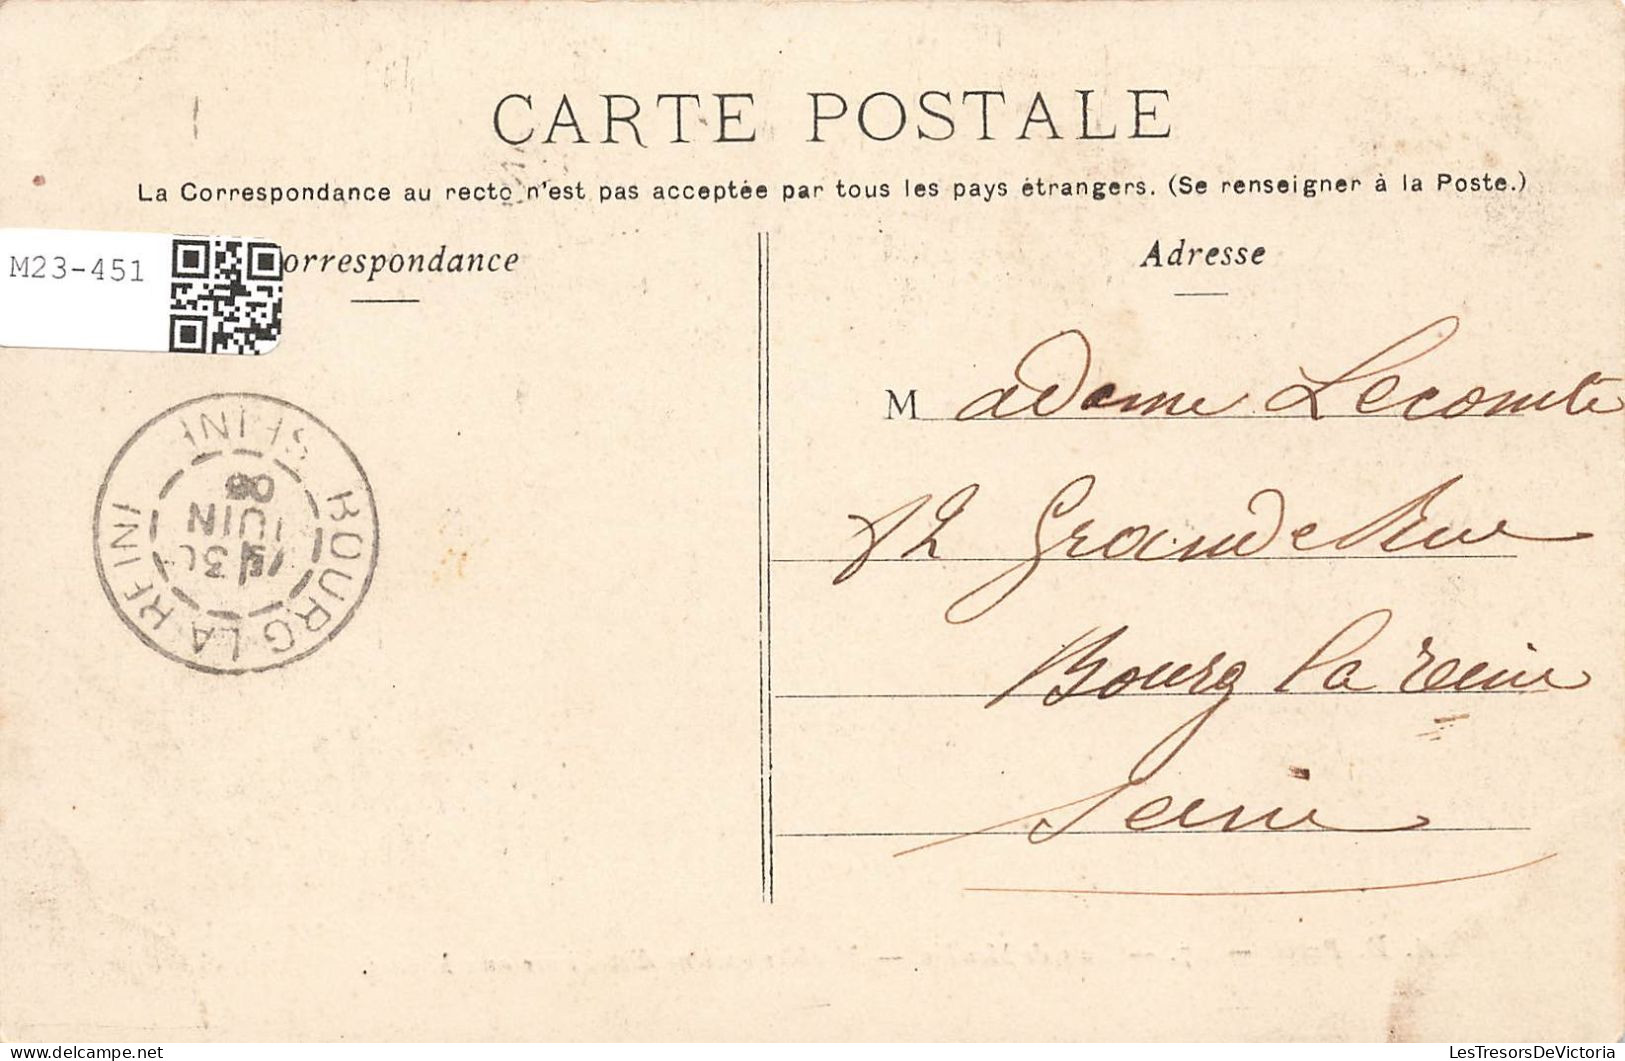 CARTE POSTALE
La Correspondance au recto n'est pas acceptée par tous les pays étrangers. (Se renseigner à la Poste.)
M23-451
orrespondance
Adresse
Madame Lecomte
12 Grande Rue
Bourg la reine
Seine
BOURG LA REINE
SEINE
30
JUIN
06
LesTresorsDeVictoria